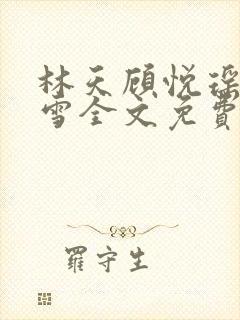 林天顾悦瑶
雪全文免费
罗守生